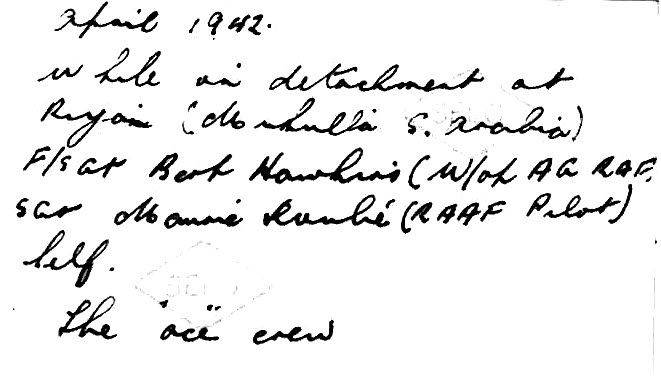 April 1942.
While on detachment at
Ryan (Mukulla S. Arabia)
F/Sgt Bert Hawkins (W/op AG RAF.
Sgt Maurie (RAAF Pilot)
Self.
The "ace" crew